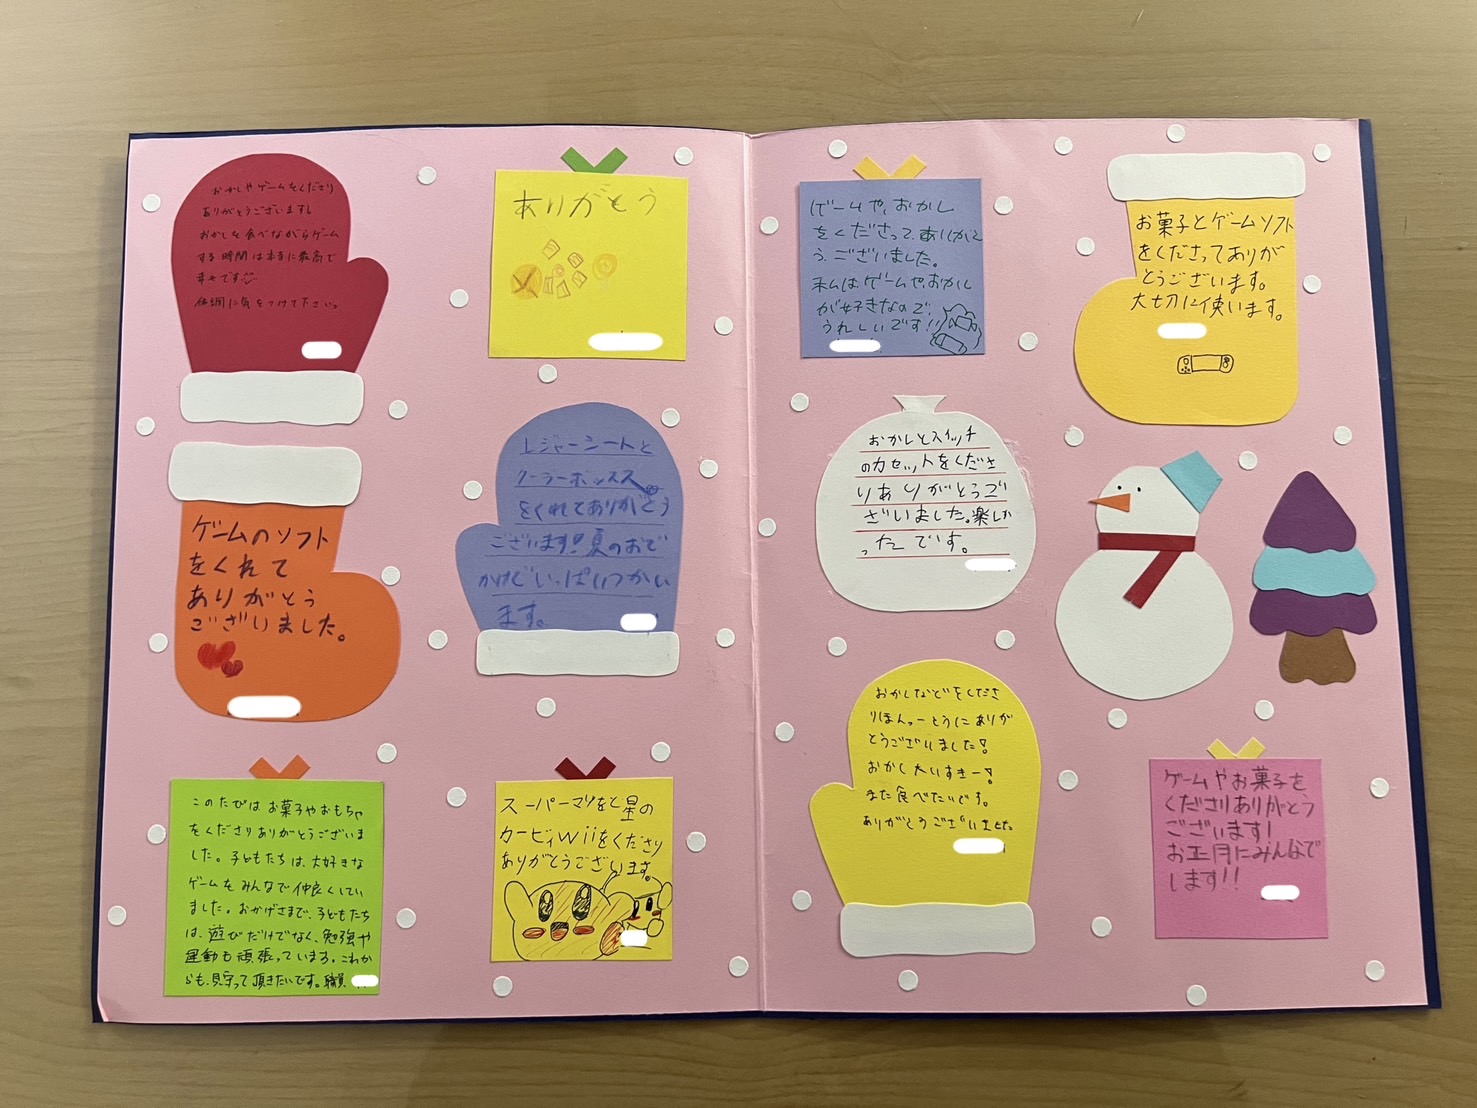 おかしやゲームをくださり
ありがとうございます!
おかしを食べながらゲーム
する時間は本当に最高で
幸せです
体調に気をつけて下さい。
ありがとう
ゲームのソフト
をくれて
ありがとう
ございました。
レジャーシートと
クーラーボックス
をくれてありがとう
ございます!!夏のおで
かけでいっぱいつかい
ます。
このたびはお菓子やおもちゃ
をくださりありがとうございま
した。子どもたちは、大好きな
ゲームをみんなで仲良くしてい
ました。おかげさまで、子どもたち
は、遊びだけでなく、勉強や
運動も頑張っています。これか
らも、見守って頂きたいです。職員
スーパーマリオと星の
カービィwiiをくださり
ありがとうございます。
ゲームや、おかし
をくださって、ありがと
う。ございました。
私は、ゲームやおかし
が好きなので、
うれしいです!!
お菓子とゲームソフト
をくださってありが
とうございます。
大切に使います。
おかしとスイッチ
のカセットをくださ
りありがとうござ
ざいました。楽しか
ったです。
おかしなどをくださ
りほんっーとうにありが
とうございました!
おかし大いすきー!
また食べたいです。
ありがとうございました。
ゲームやお菓子を
くださりありがとう
ございます!
お正月にみんなで
します!!